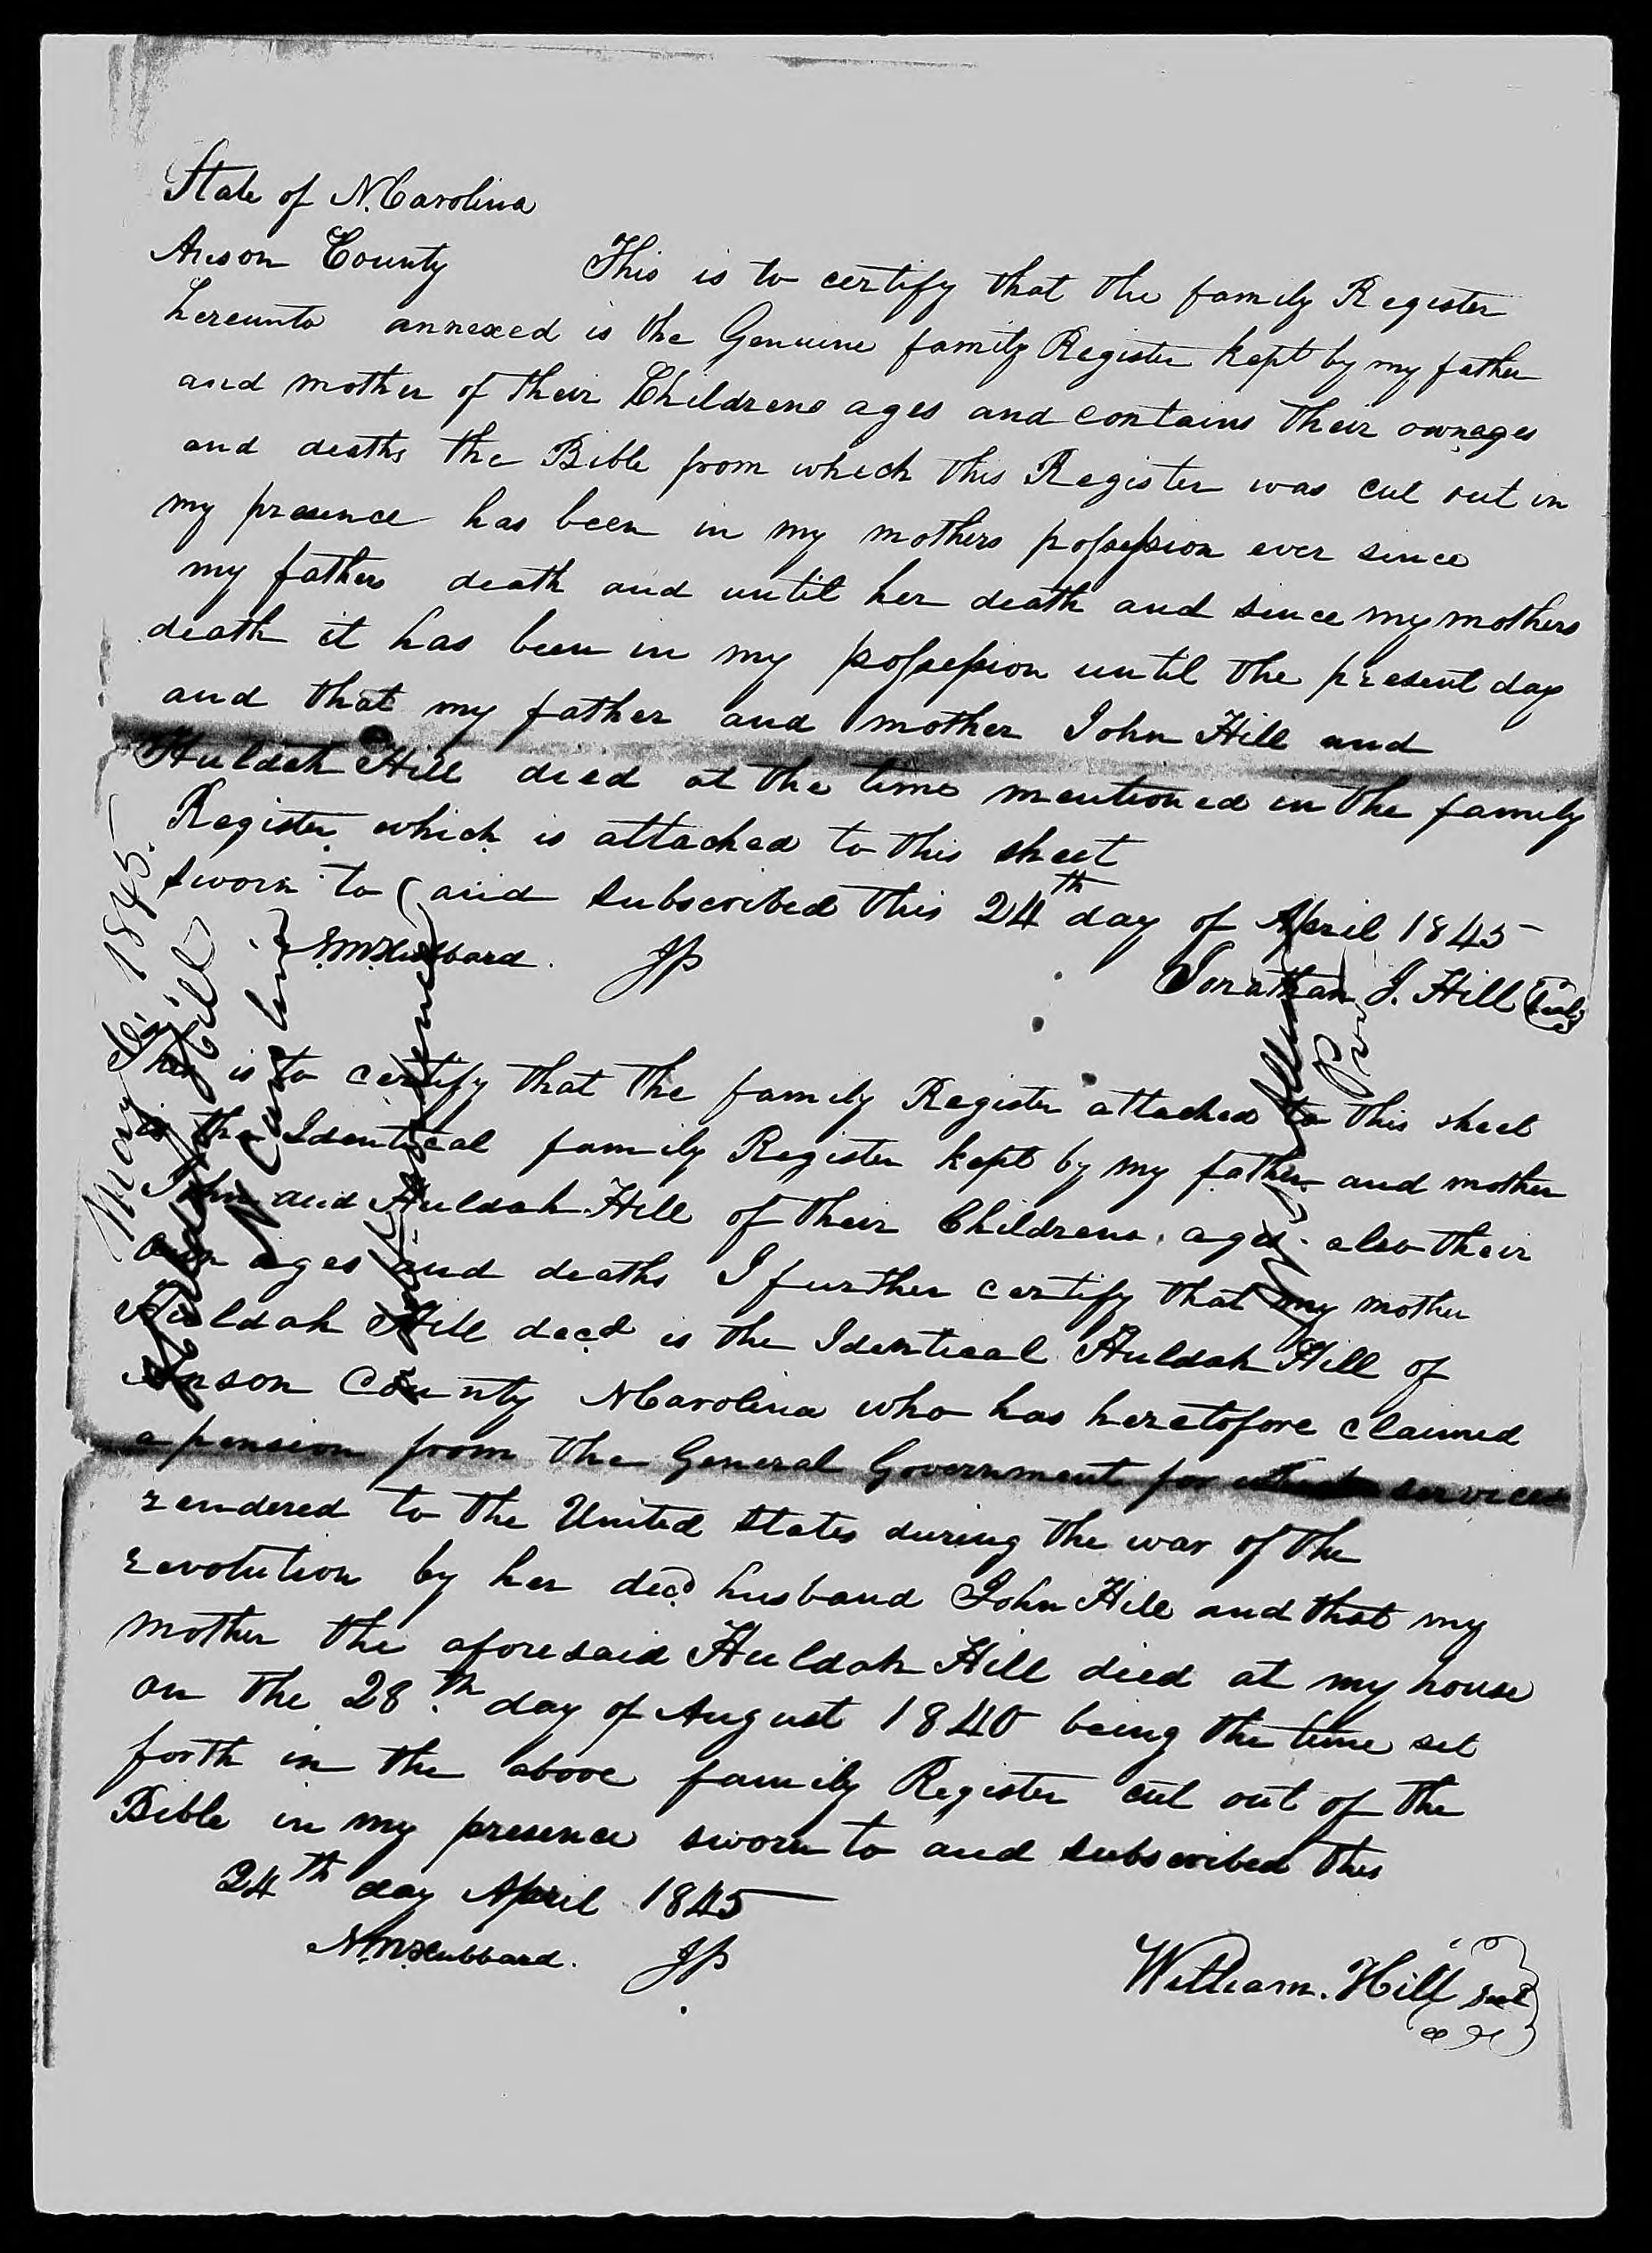 State of N. Carolina
Anson County This is to certify that the family Register
hereunto annexed is the Genuine family Register kept by my father
and mother of their Childrens ages and contains their own ages
and deaths the Bible from which this Register was cut out in
my presence has been in my mothers possession ever since
my fathers death and until her death and since my mothers
death it has been in my possession until the present day
and that my father and mother John Hill and
Huldah Hill died at the time mentioned in the family
Register which is attached to this sheet
sworn to and subscribed this 24th day of April 1845
Hubbard. JP
Jonathan J. Hill Seal
This is to certify that the family Register attached to this sheet
is the Identical family Register kept by my father and mother
John and Huldah Hill of their Childrens ages also their
own ages and deaths I further certify that my mother
Huldah Hill decd is the Identical Huldah Hill of
Anson County N Carolina who has heretofore claimed
a pension from the General Government for services
rendered to the United States during the war of the
revolution by her decd husband John Hill and that my
mother the aforesaid Huldah Hill died at my house
on the 28th day of August 1840 being the time set
forth in the above family Register cut out of the
Bible in my presence sworn to and subscribed this
24th day April 1845
Hubbard. JP
William. Hill seal
May 1845
Huldah Hill
N Carolina